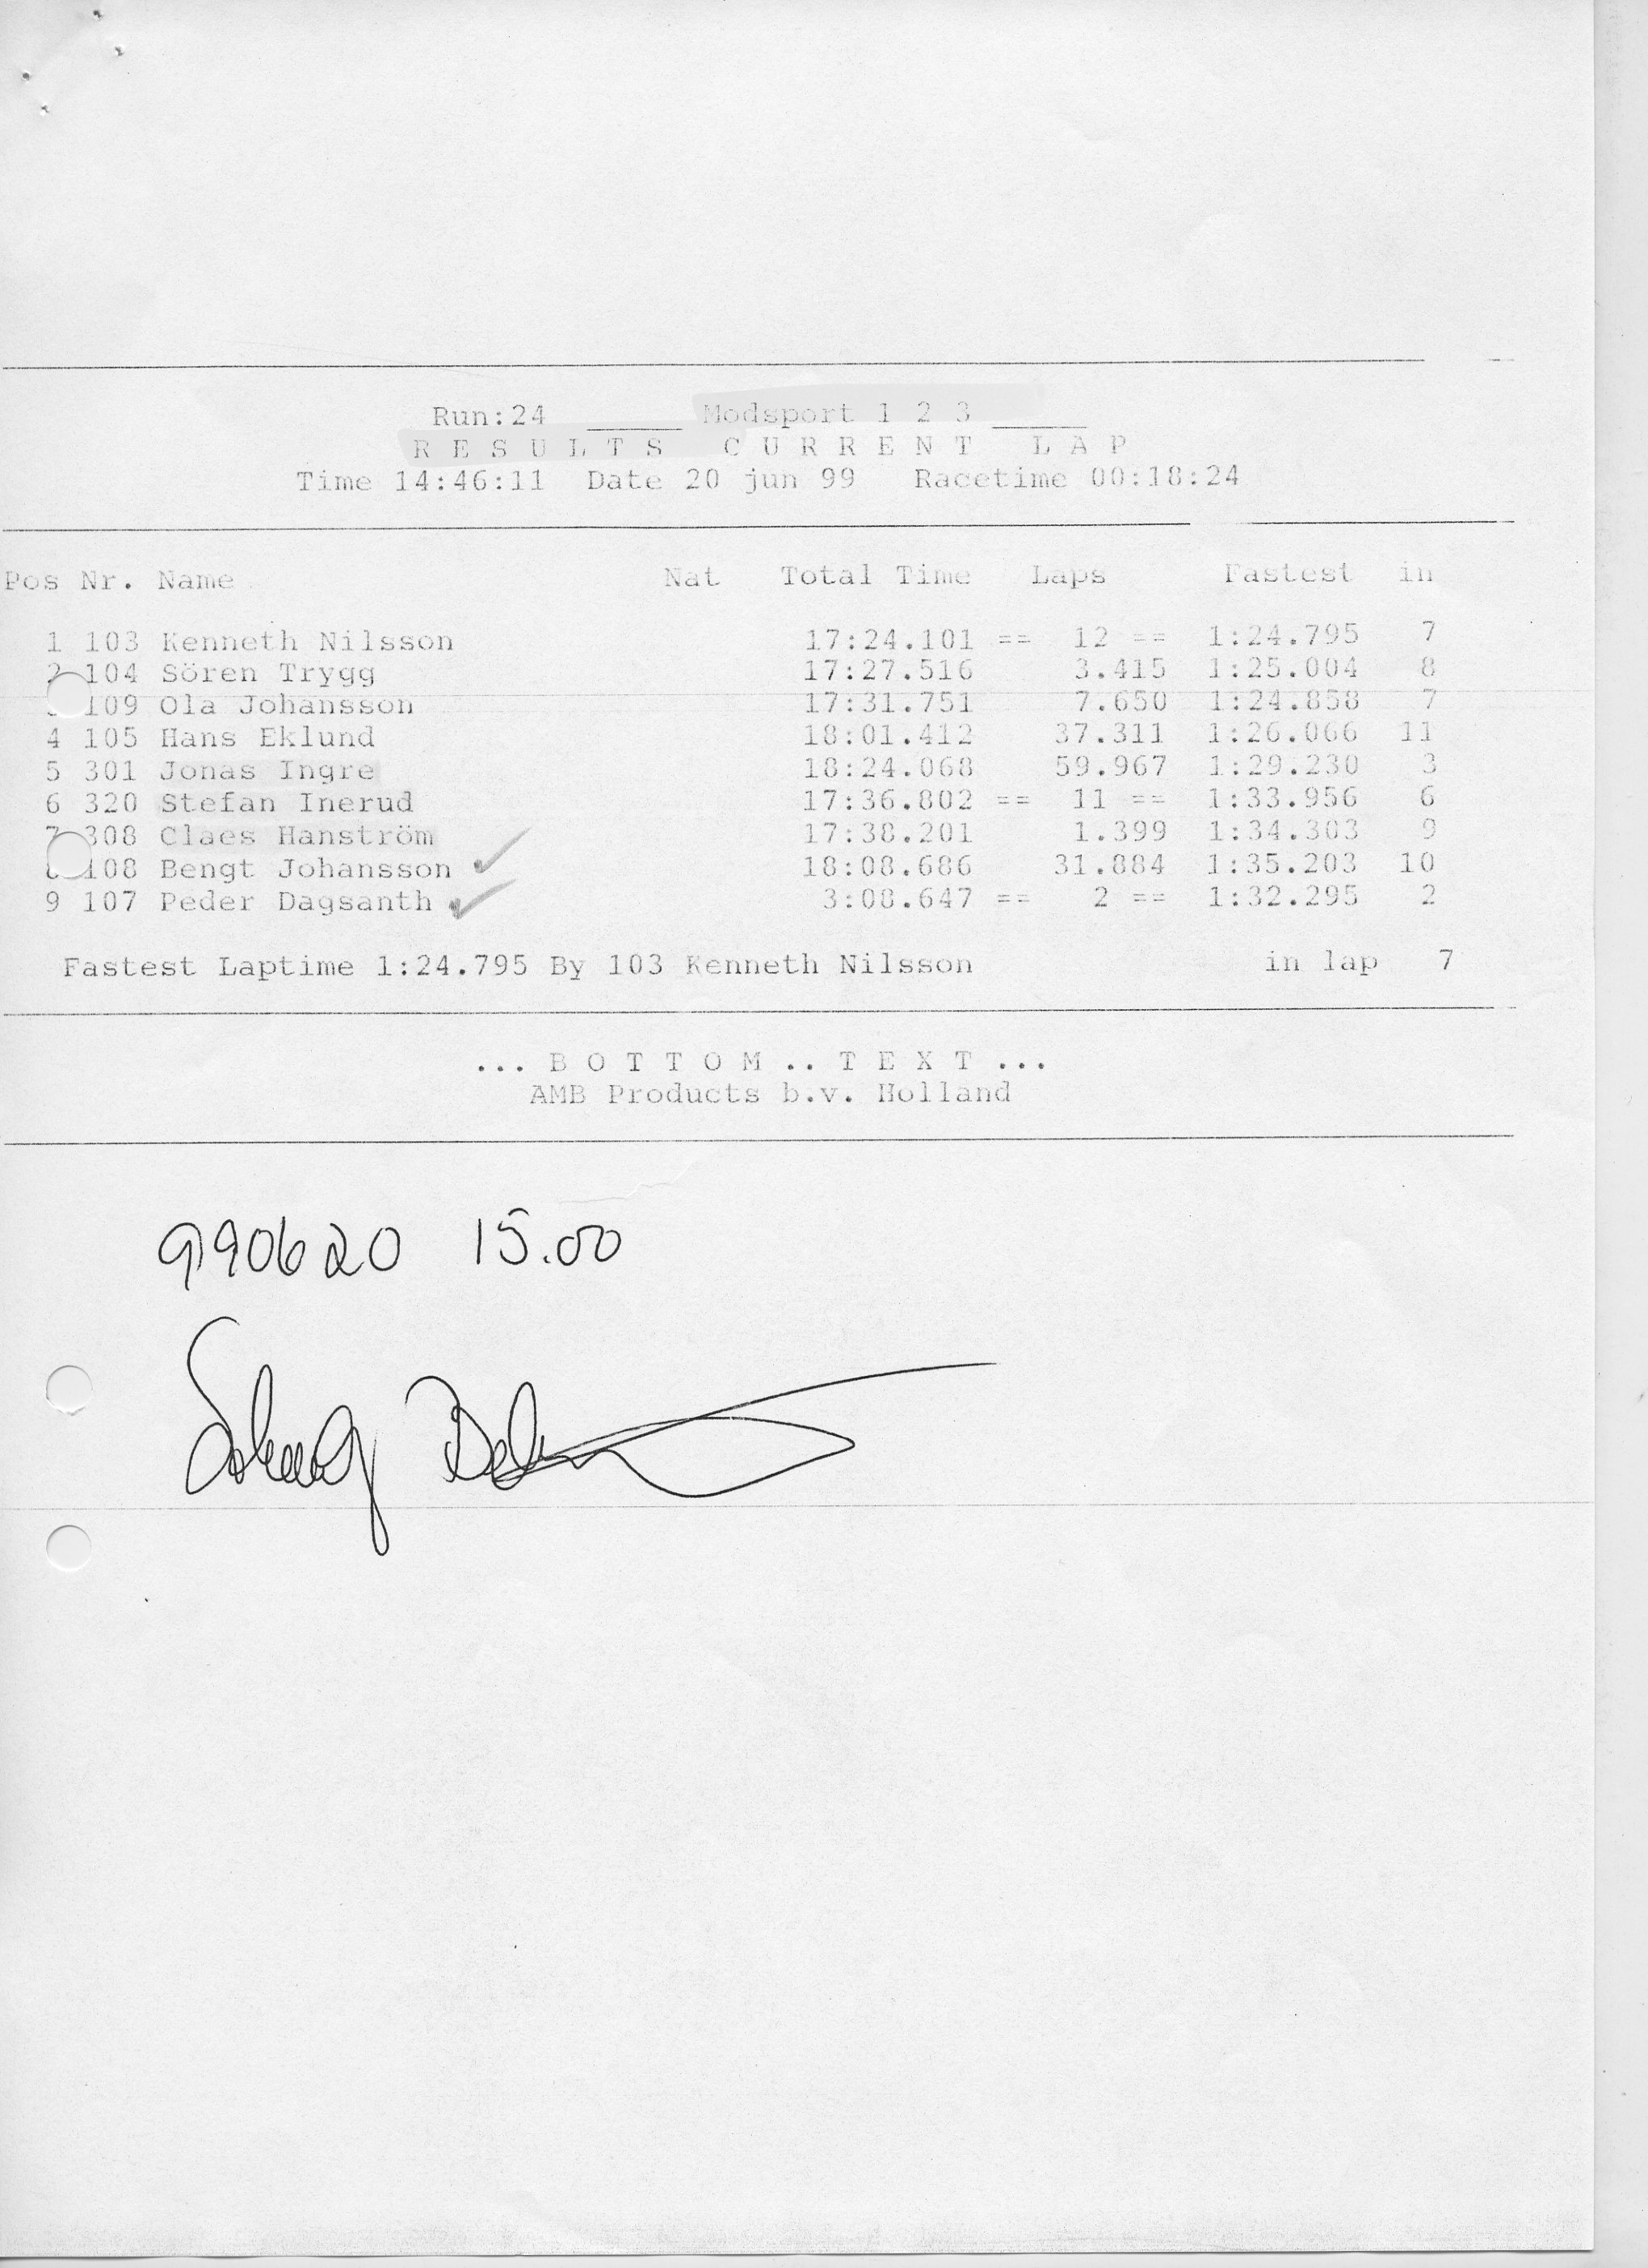 Run:24 _____ Modsport 1 2 3 _____
R E S U L T S C U R R E N T L A P
Time 14:46:11 Date 20 jun 99 Racetime 00:18:24
Pos Nr. Name Nat Total Time Laps Fastest in
1 103 Kenneth Nilsson 17:24.101 == 12 == 1:24.795 7
2 104 Sören Trygg 17:27.516 3.415 1:25.004 8
109 Ola Johansson 17:31.751 7.650 1:24.858 7
4 105 Hans Eklund 18:01.412 37.311 1:26.066 11
5 301 Jonas Ingre 18:24.068 59.967 1:29.230 3
6 320 Stefan Inerud 17:36.802 == 11 == 1:33.956 6
7 308 Claes Hanström 17:38.201 1.399 1:34.303 9
108 Bengt Johansson ✓ 18:08.686 31.884 1:35.203 10
9 107 Peder Dagsanth ✓ 3:08.647 == 2 == 1:32.295 2
Fastest Laptime 1:24.795 By 103 Kenneth Nilsson in lap 7
... B O T T O M .. T E X T ...
AMB Products b.v. Holland
990620 15.00